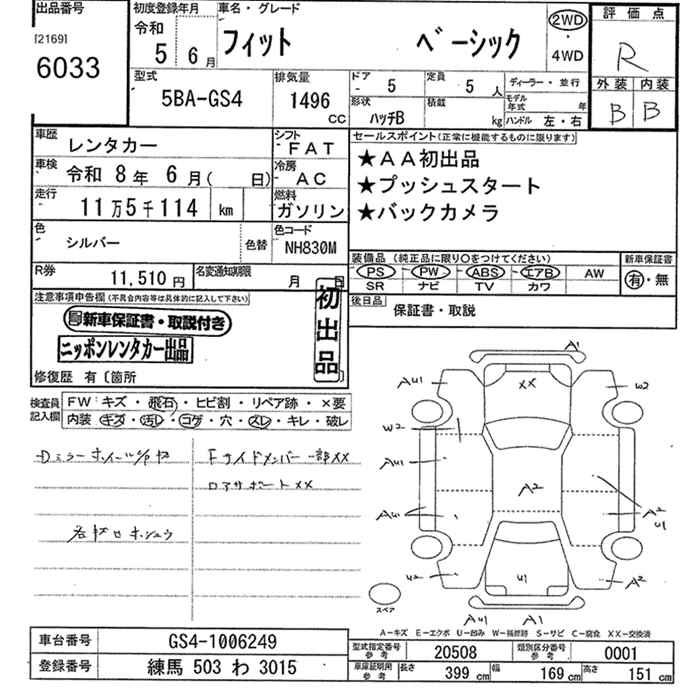 出品番号
[2169]
6033
初度登録年月
令和
5 6月
車名・グレード
フィット ベーシック
2WD
・
4WD
評価点
R
外装 内装
B B
型式
5BA-GS4
排気量
1496
CC
ドア
- 5
定員
5 人
形状
ハッチB
積載
kg
ディーラー・並行
モデル年式 年
ハンドル 左・右
車歴
レンタカー
シフト
FAT
車検
令和 8年 6月( 日)
冷房
- AC
走行
11万5千114 km
燃料
ガソリン
色
シルバー
色替
色コード
NH830M
R券
11,510円
名変通知期限
月 日
セールスポイント(正常に機能するものに限ります)
★AA初出品
★プッシュスタート
★バックカメラ
装備品 (純正品に限り○をつけてください)
PS・PW・ABS・エアB・AW
SR ナビ TV カワ
新車保証書
有・無
後日品
保証書・取説
注意事項申告欄(不具合内容等は具体的に記入して下さい)
新車保証書・取説付き
ニッポンレンタカー出品
初出品
修復歴 有〔箇所
検査員記入欄
FW キズ・飛石・ヒビ割・リペア跡・×要
内装 キズ・汚レ・コゲ・穴・スレ・キレ・破レ
Fサイドメンバー一部XX
ロアサポートXX
A1
AU1
XX
W2
W2
AU1
A2
A2
AU1
W2
U1
W2
U1
A2
AU1
A1
スペア
A-キズ E-エクボ U-凹み W-補修跡 S-サビ C-腐食 XX-交換済
車台番号
GS4-1006249
登録番号
練馬 503 わ 3015
型式指定番号参考
20508
類別区分番号参考
0001
車庫証明用参考
長さ 399 cm
幅 169 cm
高さ 151 cm